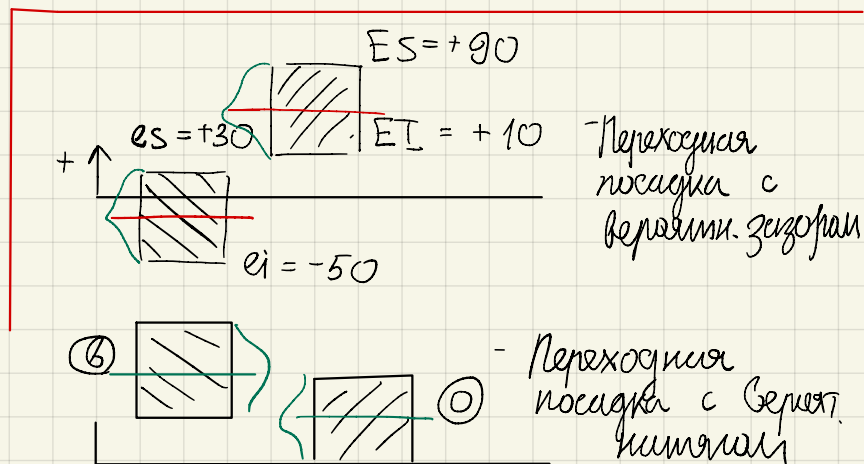 ES = +90
es = +30
EI = +10
+
ei = -50
- Переходная
посадка с
вероятн. зазором
в
О
- Переходная
посадка с верият.
натягом